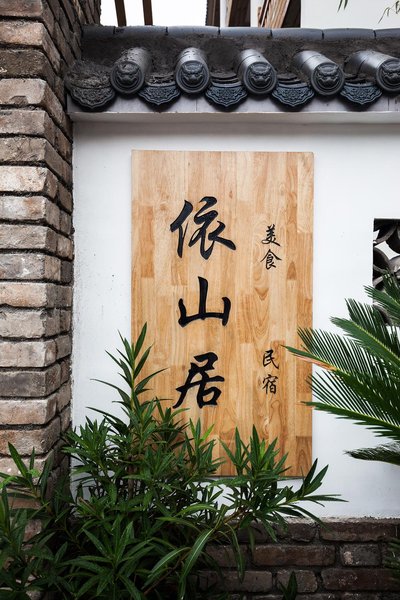 依山居
美食
民宿